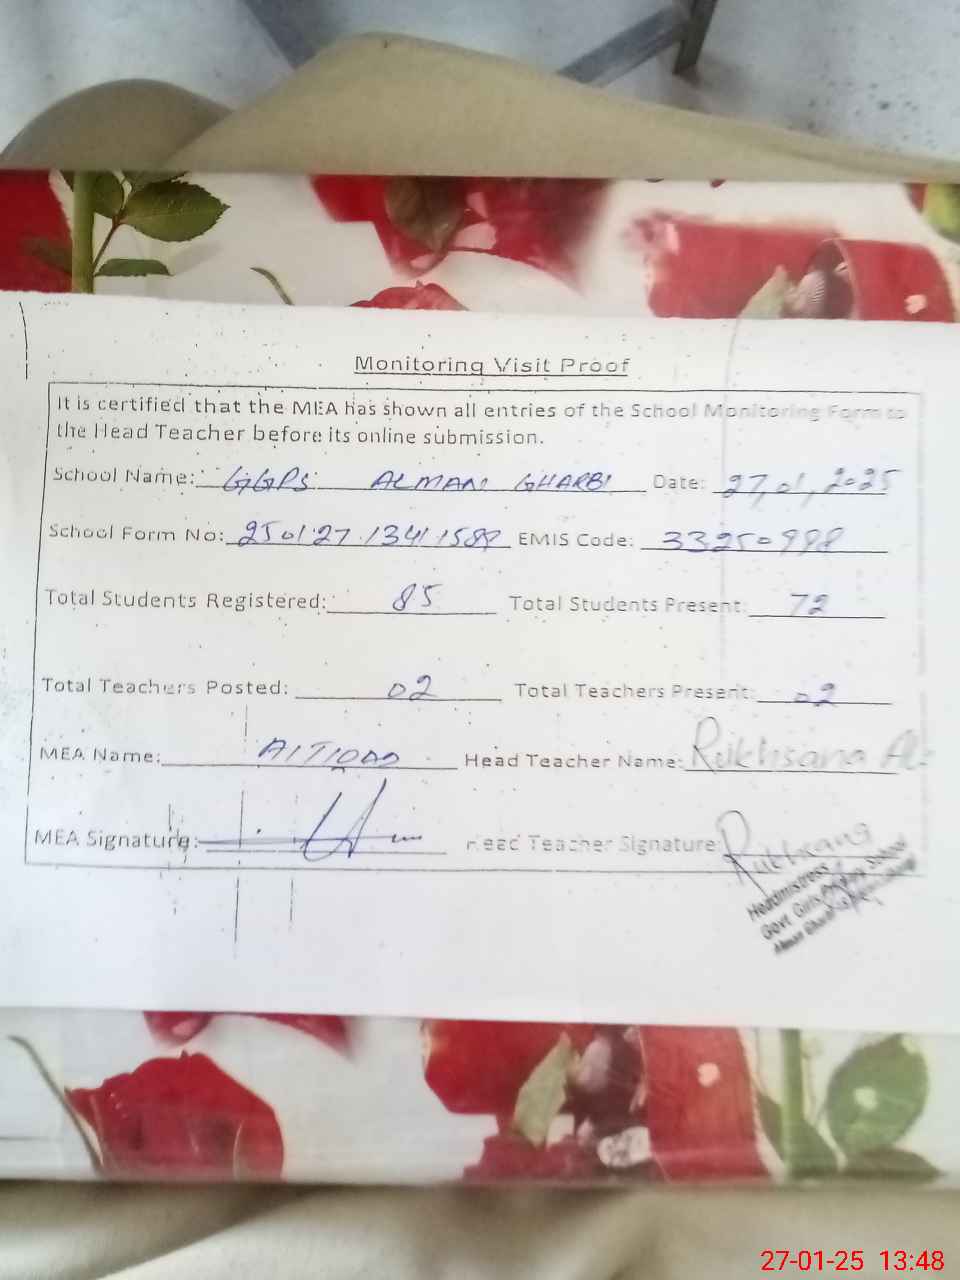 Monitoring Visit Proof
It is certified that the MEA has shown all entries of the School Monitoring Form to
the Head Teacher before its online submission.
School Name: GGPS ALMANI GHARBI Date: 27,01,2025
School Form No: EMIS Code: 33250998
Total Students Registered: 85 Total Students Present: 72
Total Teachers Posted: 02 Total Teachers Present: 02
MEA Name: Head Teacher Name: Rukhsana
MEA Signature: Head Teacher Signature: Rukhsana
Headmistress
Govt Girls Primary School
27-01-25 13:48